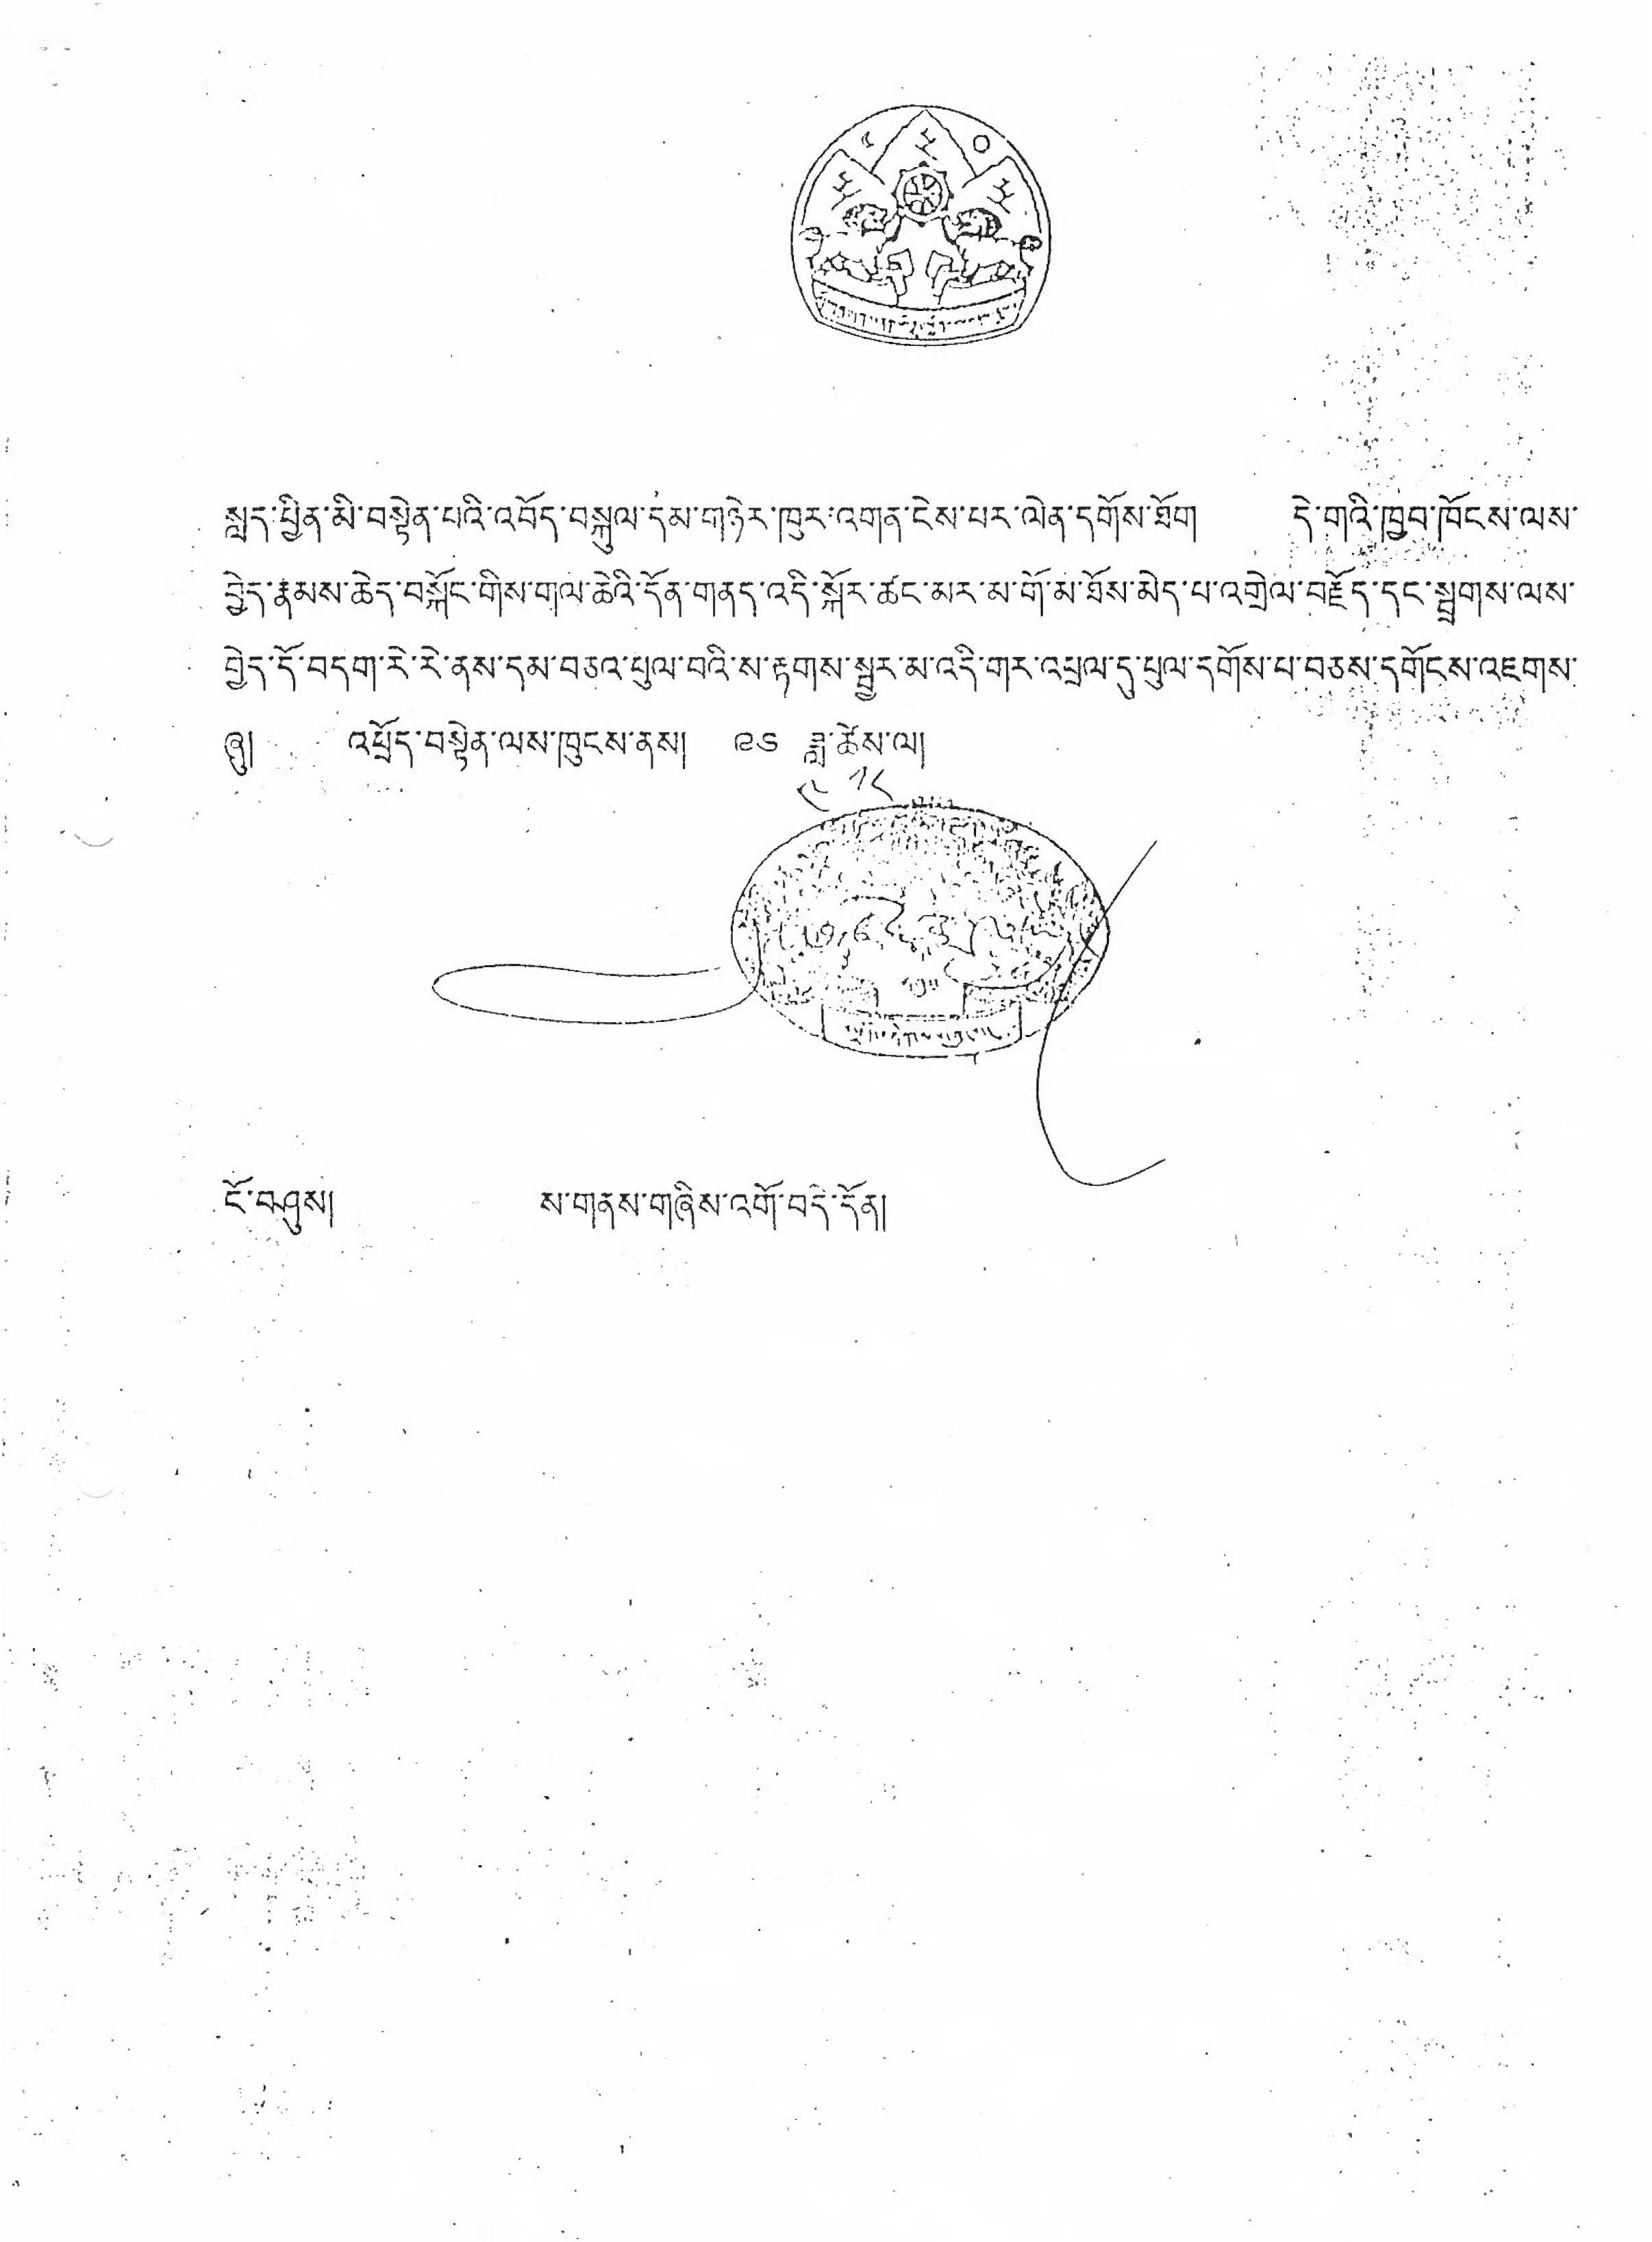 སླད་ཕྱིན་མི་བསྟེན་པའི་འབོད་བསྐུལ་དམ་གཉེར་ཁུར་འགན་ངེས་པར་ལེན་དགོས་ཐོག དེ་གའི་ཁྱབ་ཁོངས་ལས་
བྱེད་རྣམས་ཆེད་བསྐོང་གིས་གལ་ཆེའི་དོན་གནད་འདི་སྐོར་ཚང་མར་མ་གོ་མ་ཐོས་མེད་པ་འགྲེལ་བརྗོད་དང་སྦྲགས་ལས་
བྱེད་དོ་བདག་རེ་རེ་ནས་དམ་བཅའ་ཕུལ་བའི་ས་རྟགས་སྦྱར་མ་འདི་གར་འཕྲལ་དུ་ཕུལ་དགོས་པ་བཅས་དགོངས་འཇགས་
ཞུ། འཕྲོད་བསྟེན་ལས་ཁུངས་ནས། ༩༦ ཟླ་ཚེས་ལ།
ངོ་བཤུས། ས་གནས་གཞིས་འགོ་བདེ་དོན།